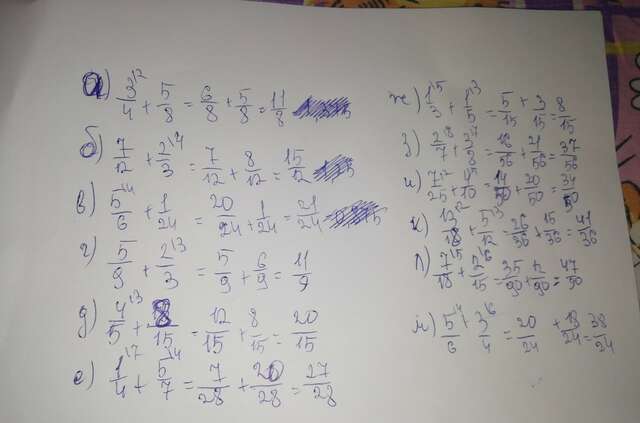 а) 3/4 + 5/8 = 6/8 + 5/8 = 11/8
б) 7/12 + 2/3 = 7/12 + 8/12 = 15/12
в) 5/6 + 1/24 = 20/24 + 1/24 = 21/24
г) 5/9 + 2/3 = 5/9 + 6/9 = 11/9
д) 4/5 + 8/15 = 12/15 + 8/15 = 20/15
е) 1/4 + 5/7 = 7/28 + 20/28 = 27/28
ж) 1/3 + 1/5 = 5/15 + 3/15 = 8/15
з) 2/7 + 3/8 = 16/56 + 21/56 = 37/56
и) 7/25 + = 14/50 + 20/50 = 34/50
к) 13/18 + 5/12 = 26/36 + 15/36 = 41/36
л) 7/18 + 2/15 = 35/90 + 12/90 = 47/90
м) 5/6 + 3/4 = 20/24 + 18/24 = 38/24